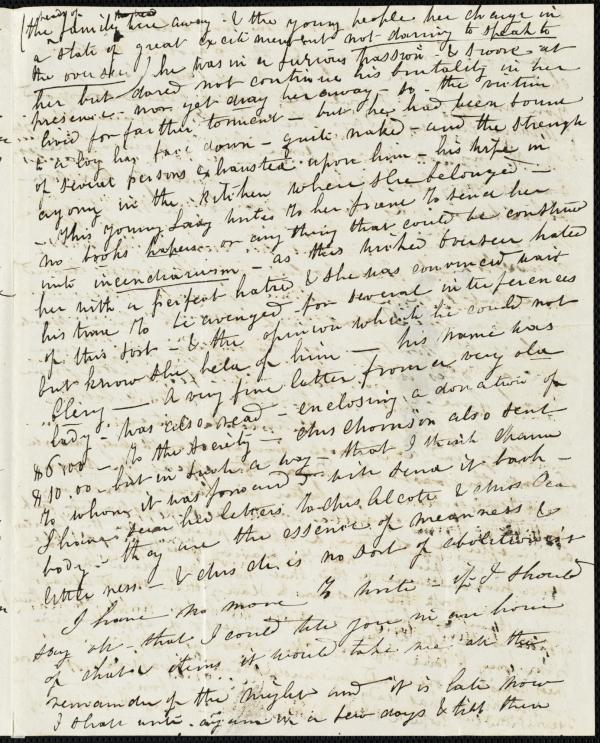 (the family were away - & the young people her charge in
a state of great excitement but not daring to speak to
the overseer / he was in a furious passion & swore at
her but dared not continue his brutality in her
presence - nor yet drag her away - so - the victim
lived for farther torment - but he had been bound
to a log his face down - quite naked - and the strength
of several persons exhausted upon him - his wife in
agony in the kitchen where she belonged -
- This young Lady writes to her friend to send her
no books papers or any thing that could be construed
into incendiarism - as this wicked overseer hated
her with a perfect hatred & she was convinced wait
his time to be avenged for several interferences
of this sort - & the opinion which he could not
but know she held of him - his name was
- A very fine letter from a very old
lady - was also read - enclosing a donation of
$6.00 - to the society - Mrs Thomson also sent
$10.00 - but in such a way - that I think
to whom it was forwarded will send it back -
I have her letters to Mrs Alcott & Miss Pea
body - they are the essence of meanness &
littleness - & Mrs is no sort of abolitionist
I have no more to write - if I should
say oh - that I could tell you in an hour
of chat &amp; items it would take me all the
remainder of the night and it is late now
I shall write again in a few days & tell them